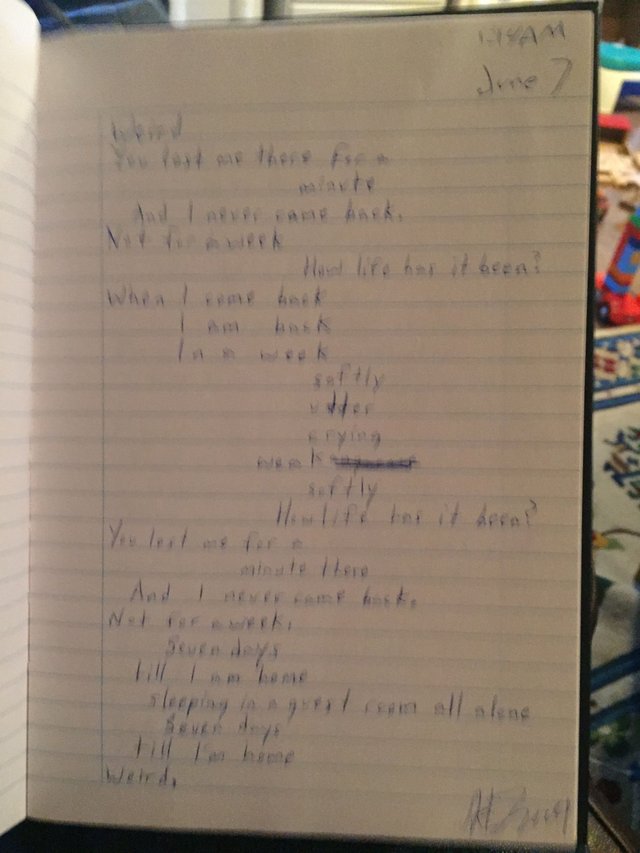 1:18AM
June 7
Weird
You lost me there for a
minute
And I never came back.
Not for a week
How life has it been?
When I come back
I am back
In a week
softly
utter
crying
weak
softly
How life has it been?
You lost me for a
minute there
And I never came back.
Not for a week.
Seven days
till I am home
sleeping in a guest room all alone
Seven days
till I'm home
Weird.